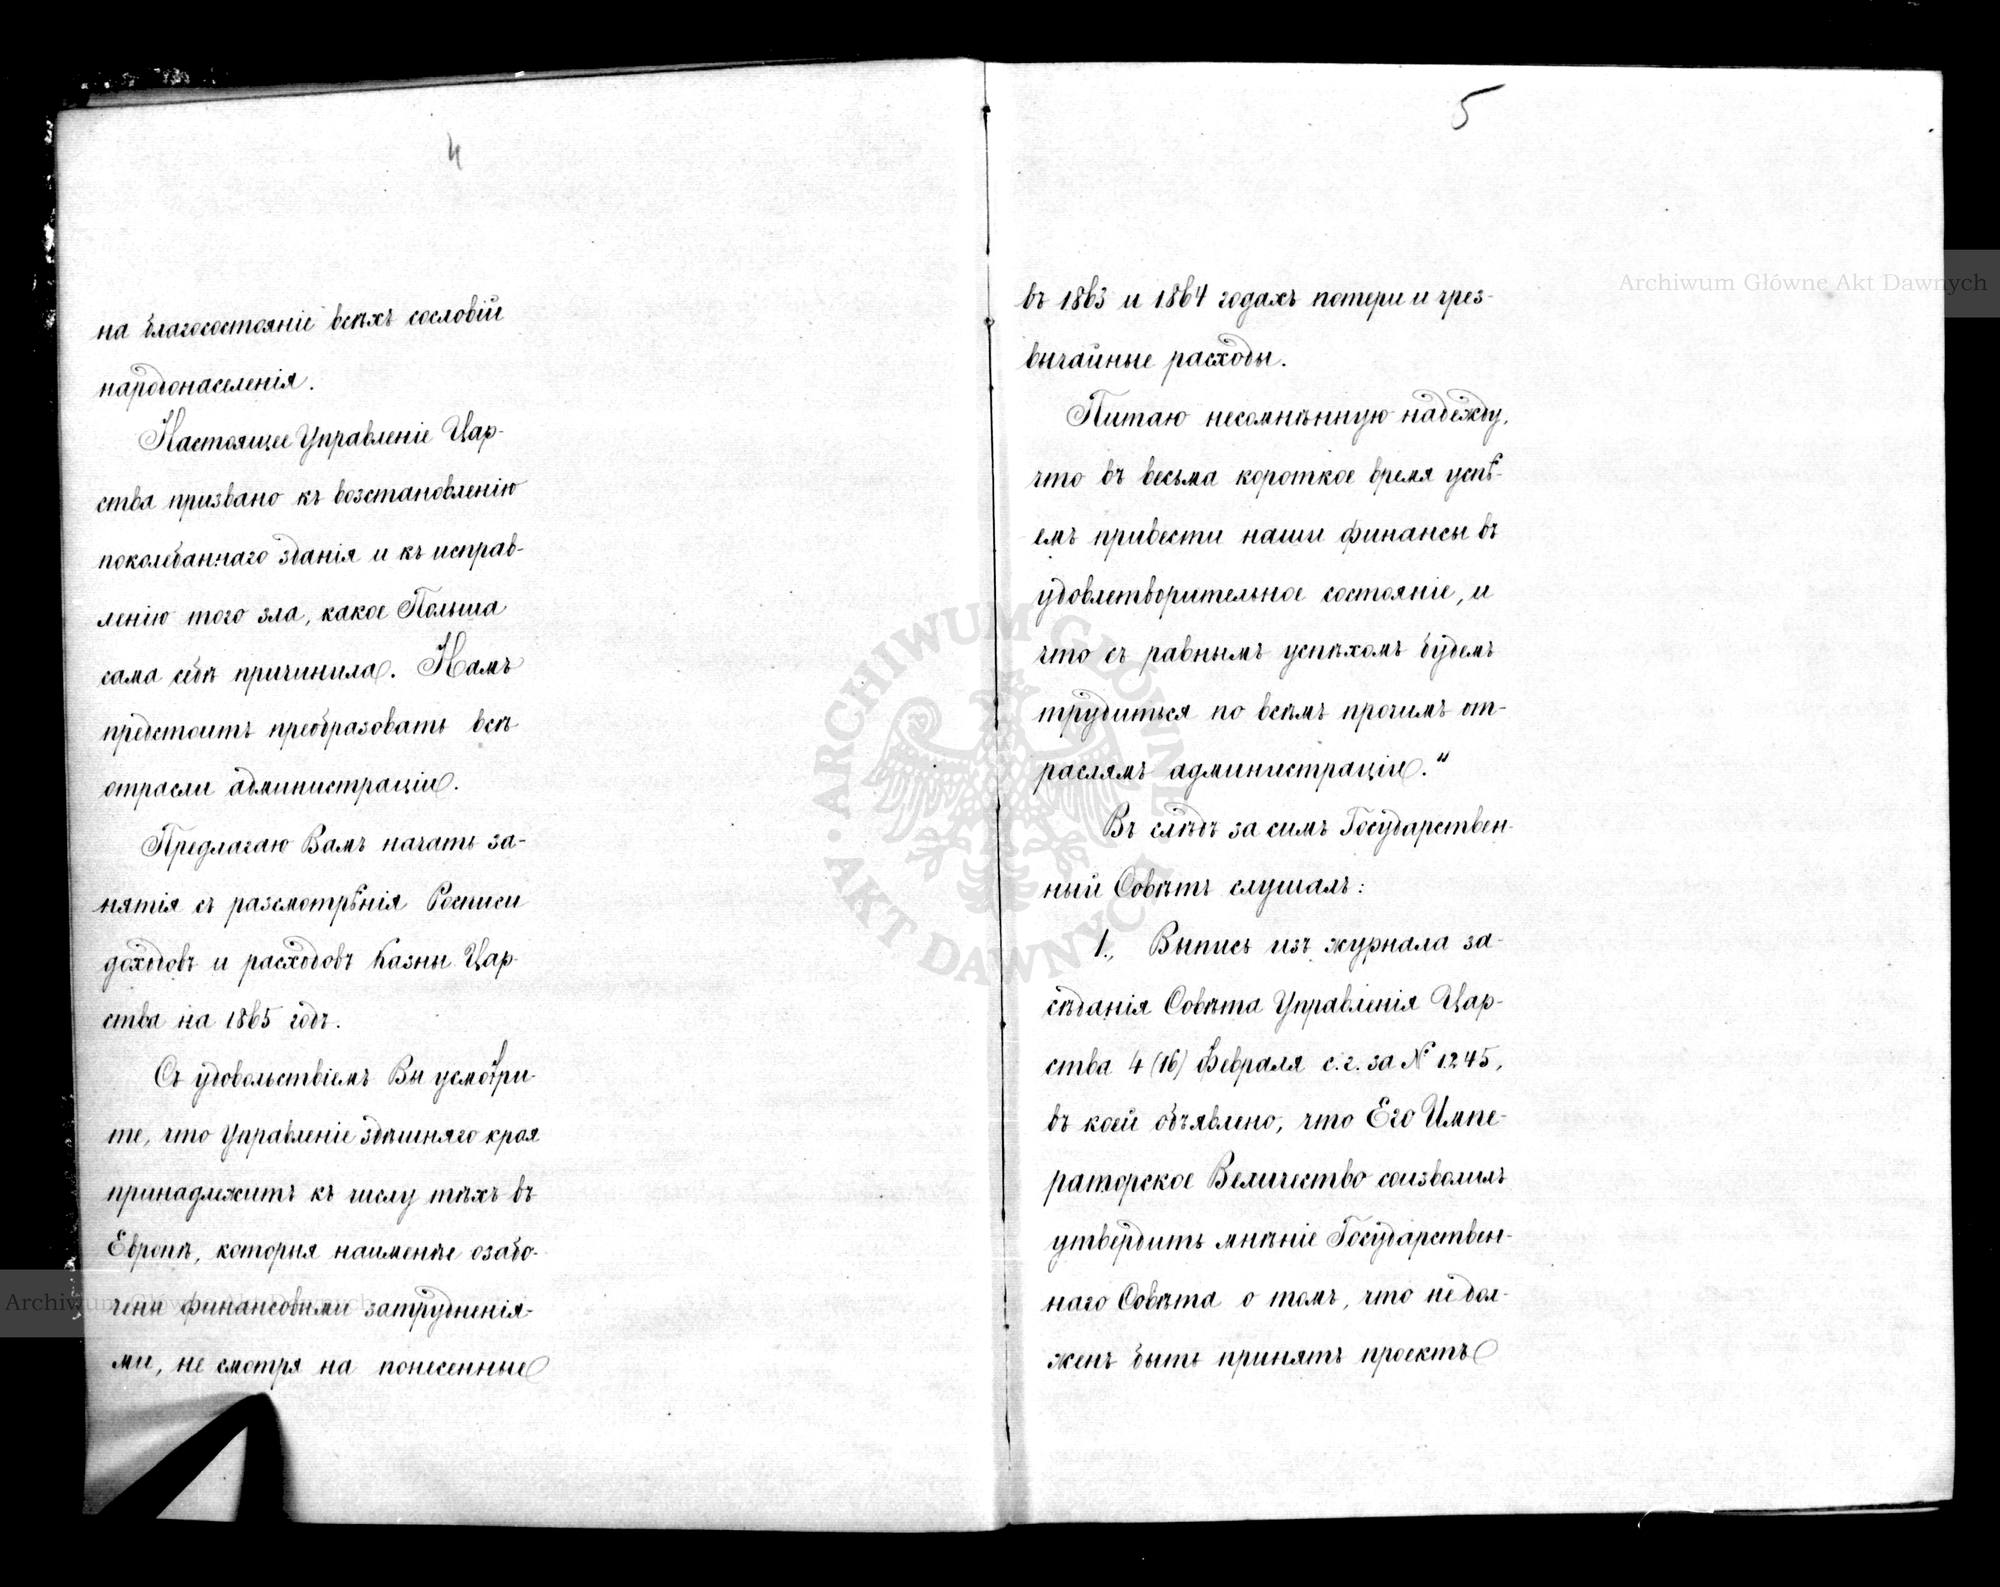 4
на благосостояніе всѣхъ сословій
народонаселенія.
Настоящее Управленіе Цар-
ства призвано къ возстановленію
поколебаннаго зданія и къ исправ-
ленію того зла, какое Польша
сама себѣ причинила. Намъ
предстоитъ преобразовать всѣ
отрасли администраціи.
Предлагаю Вамъ начать за-
нятія съ разсмотрѣнія Росписи
доходовъ и расходовъ Казны Цар-
ства на 1865 годъ.
Съ удовольствіемъ Вы усмотри-
те, что Управленіе здѣшняго края
принадлежитъ къ числу тѣхъ въ
Европѣ, которыя наименѣе озабо-
чены финансовыми затрудненія-
ми, не смотря на понесенные
5
въ 1863 и 1864 годахъ потери и чрез-
вычайные расходы.
Питаю несомнѣнную надежду,
что въ весьма короткое время успѣ-
емъ привести наши финансы въ
удовлетворительное состояніе, и
что съ равнымъ успѣхомъ будемъ
трудиться по всѣмъ прочимъ от-
раслямъ администраціи."
Въ слѣдъ за симъ Государствен-
ный Совѣтъ слушалъ:
1., Выпись изъ журнала за-
сѣданія Совѣта Управленія Цар-
ства 4 (16) Февраля с. г. за № 1245,
въ коей объявлено, что Его Импе-
раторское Величество соизволилъ
утвердить мнѣніе Государствен-
наго Совѣта о томъ, что не дол-
женъ быть принятъ проектъ
Archiwum Główne Akt Dawnych
Archiwum Główne Akt Dawnych
ARCHIWUM GŁÓWNE AKT DAWNYCH